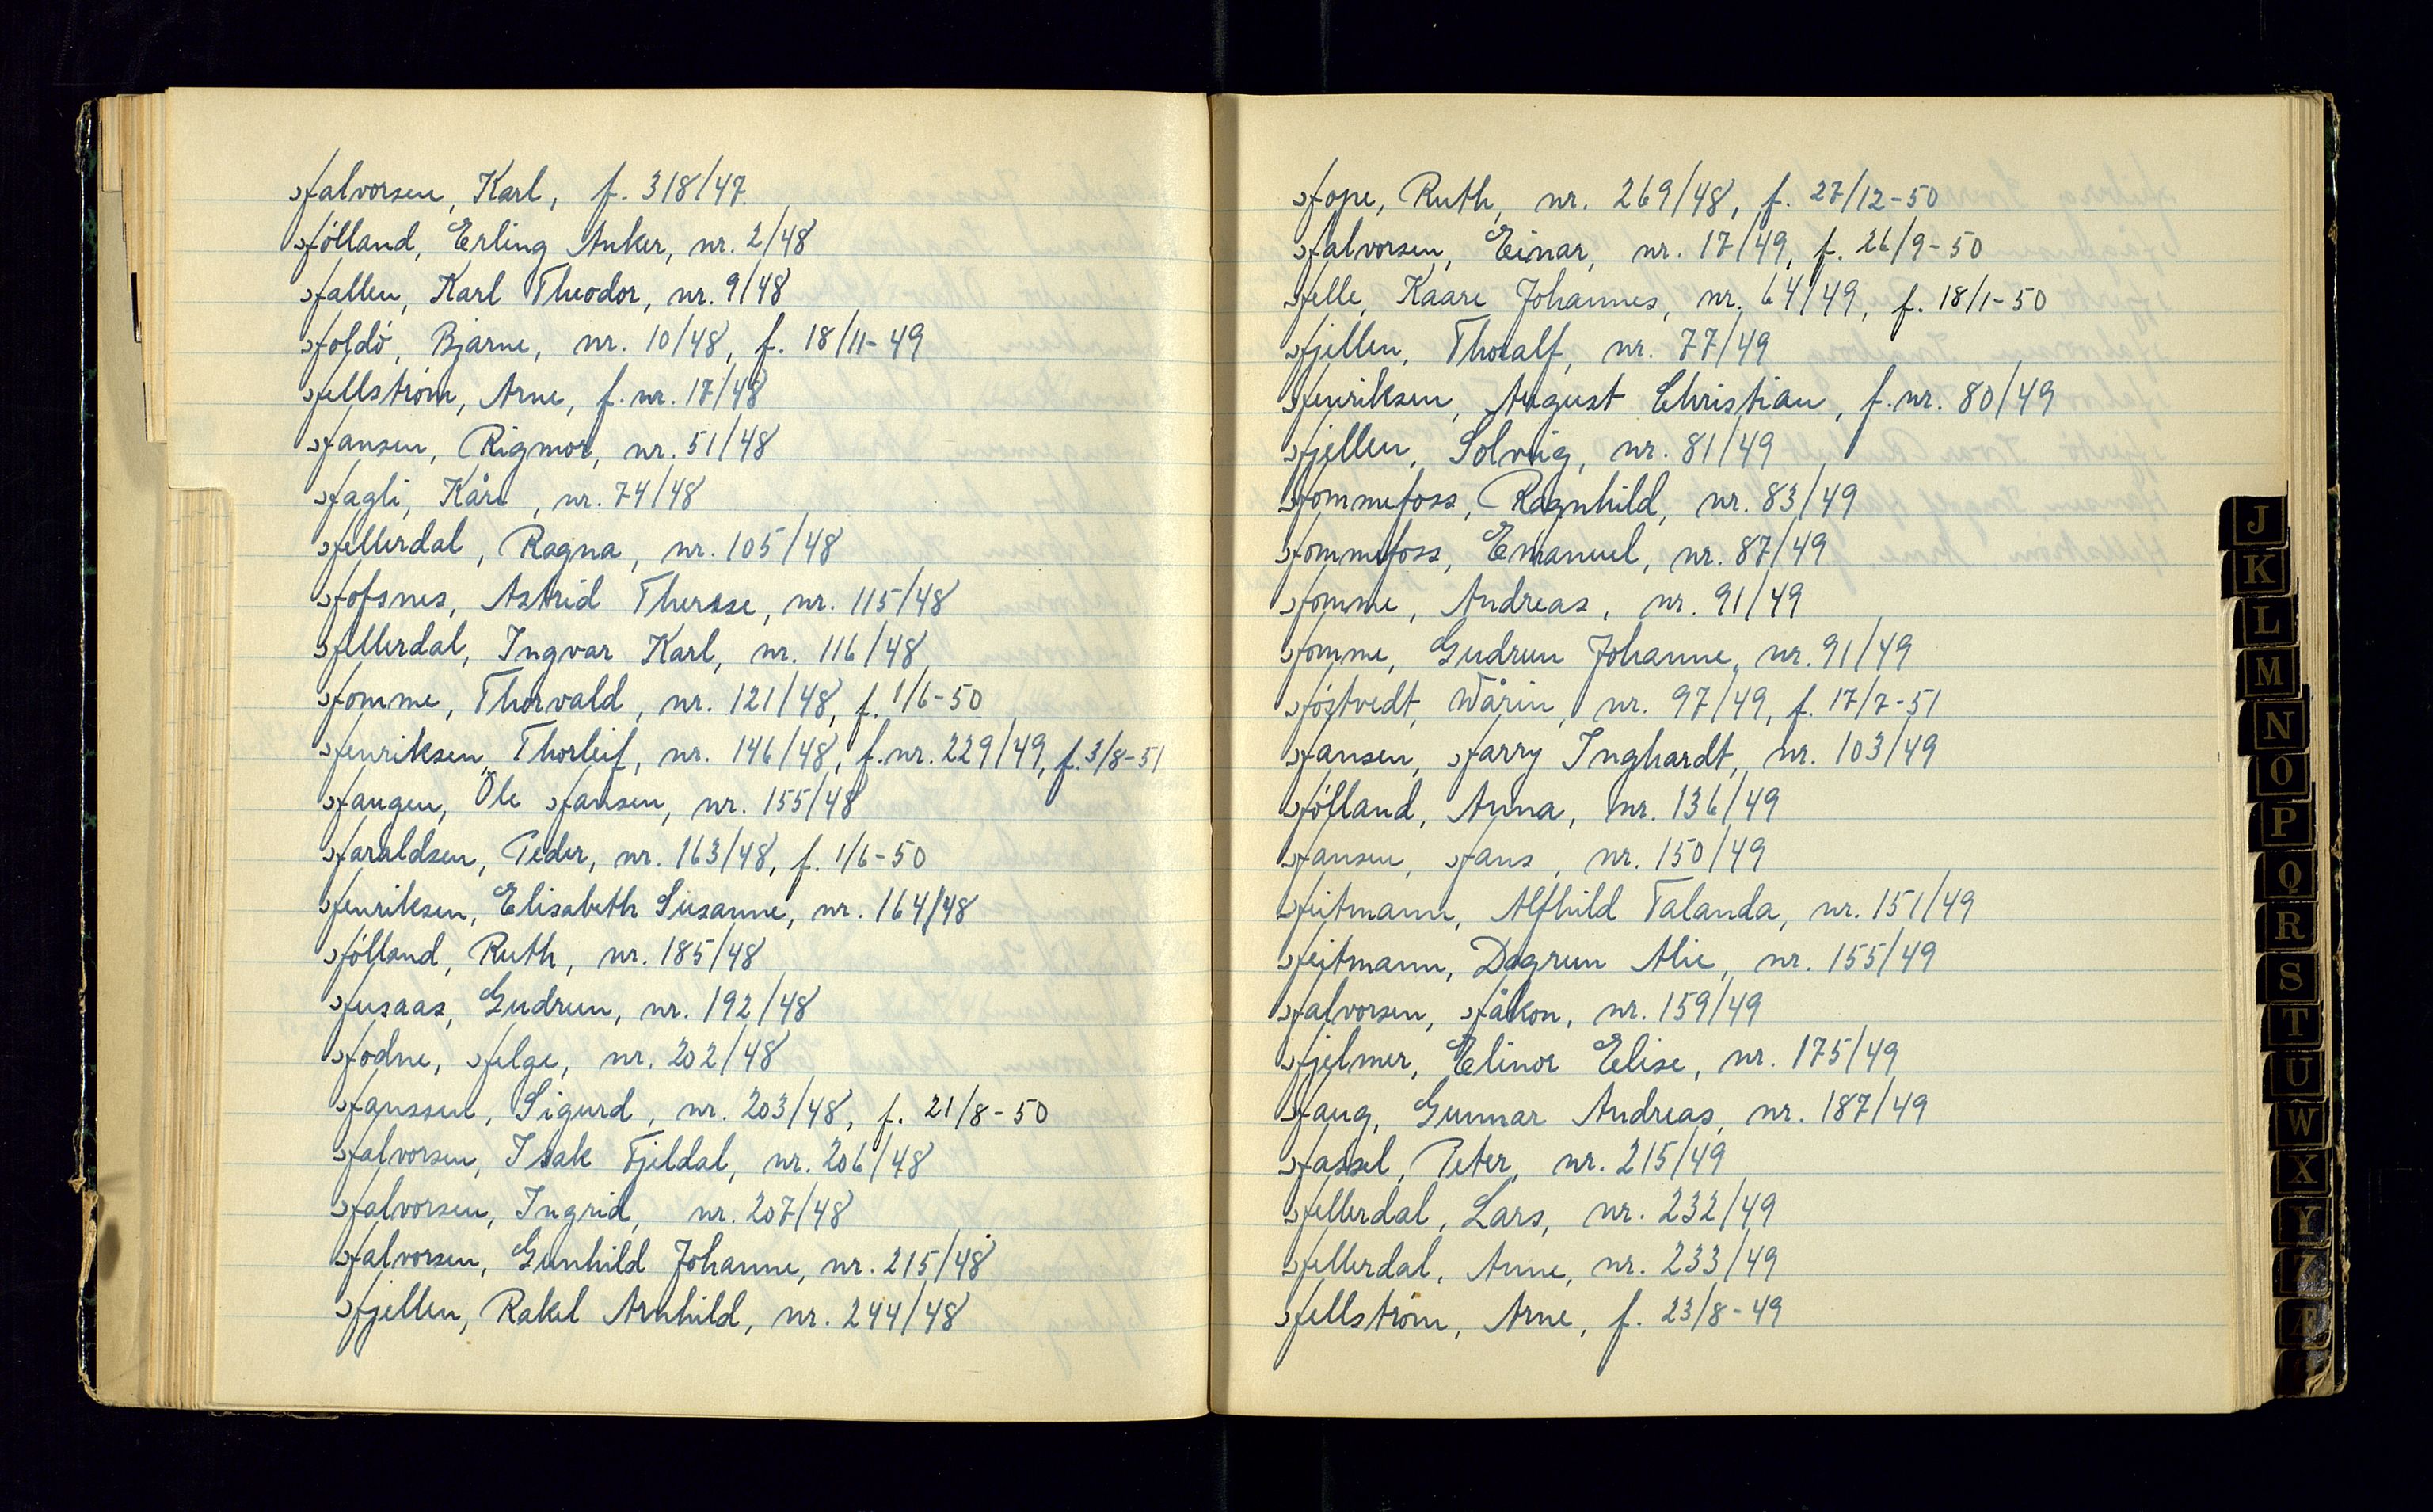 Halvorsen, Karl, f. 318/47
Hölland, Erling Anker, nr. 2/48
Hallen, Karl Theodor, nr. 9/48
Holdö, Bjarne, nr. 10/48, f. 18/11-49
Hellström, Arne, f. nr. 17/48
Hansen, Rigmor, nr. 51/48
Hagli, Kåre, nr. 74/48
Hellerdal, Ragna, nr. 105/48
Hofsnes, Astrid Therese, nr. 115/48
Hellerdal, Ingvar Karl, nr. 116/48
Homme, Thorvald, nr. 121/48, f. 1/6-50
Henriksen, Thorleif, nr. 146/48, f. nr. 229/49, f. 3/8-51
Haugen, Ole Hansen, nr. 155/48
Haraldsen, Peder, nr. 163/48, f. 1/6-50
Henriksen, Elisabeth Susanne, nr. 164/48
Hölland, Ruth, nr. 185/48
Husaas, Gudrun, nr. 192/48
Hodne, Helge, nr. 202/48
Hanssen, Sigurd, nr. 203/48, f. 21/8-50
Halvorsen, Isak Fjeldal, nr. 206/48
Halvorsen, Ingrid, nr. 207/48
Halvorsen, Gunhild Johanne, nr. 215/48
Hjellen, Rakel Arnhild, nr. 244/48
Hope, Ruth, nr. 269/48, f. 27/12-50
Halvorsen, Einar, nr. 17/49, f. 26/9-50
Helle, Kaare Johannes, nr. 64/49, f. 18/1-50
Hjellen, Thoralf, nr. 77/49
Henriksen, August Christian, f. nr. 80/49
Hjellen, Solveig, nr. 81/49
Hommefoss, Ragnhild, nr. 83/49
Hommefoss, Emanuel, nr. 87/49
Homme, Andreas, nr. 91/49
Homme, Gudrun Johanne, nr. 91/49
Höstvedt, Wårin, nr. 97/49, f. 17/7-51
Hansen, Harry Inghardt, nr. 103/49
Hölland, Anna, nr. 136/49
Hansen, Hans, nr. 150/49
Heitmann, Alfhild Talanda, nr. 151/49
Heitmann, Dagrun Alie, nr. 155/49
Halvorsen, Håkon, nr. 159/49
Hjelmer, Elinor Elise, nr. 175/49
Haug, Gunnar Andreas, nr. 187/49
Hassel, Peter, nr. 215/49
Hellerdal, Lars, nr. 232/49
Hellerdal, Anne, nr. 233/49
Hellström, Arne, f. 23/8-49
J
K
L
M
N
O
P
Q
R
S
T
U
W
X
Y
Z
Æ